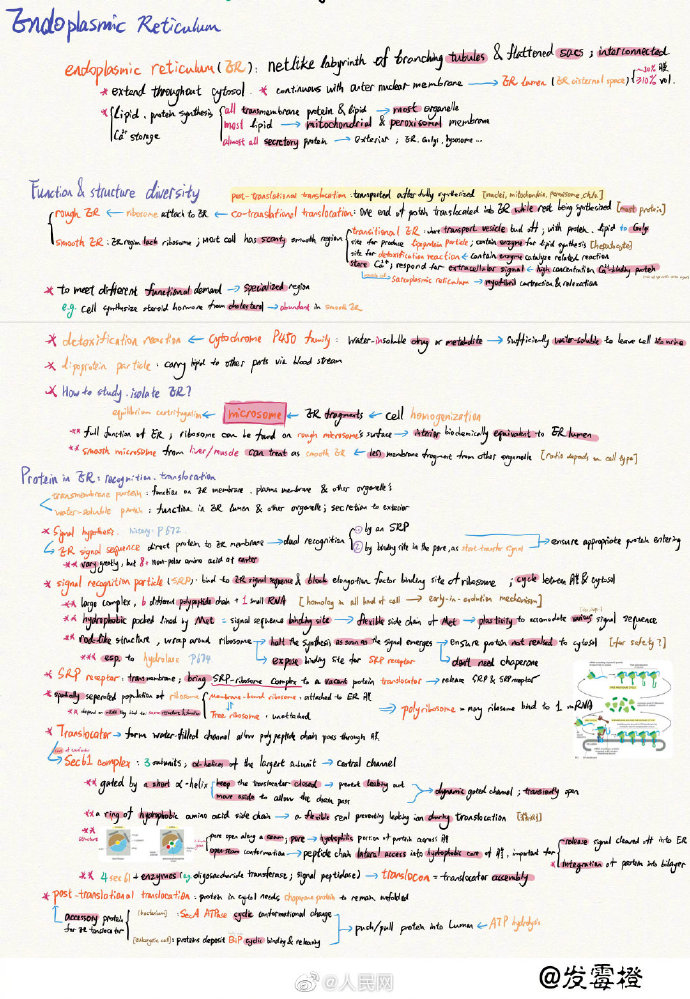 Endoplasmic Reticulum
endoplasmic reticulum (ER): netlike labyrinth of branching tubules & flattened sacs; interconnected
* extend throughout cytosol * continuous with outer nuclear membrane → ER lumen (ER cisternal space) >10% vol.
* lipid, protein synthesis all transmembrane protein & lipid → most organelle
most lipid → mitochondrial & peroxisomal membrane
Ca²⁺ storage almost all secretory protein → exterior; ER, Golgi, lysosome...
Function & structure diversity post-translational translocation: transported after fully synthesized [nuclei, mitochondria, peroxisome, chlo.]
rough ER ← ribosome attach to ER ← co-translational translocation: one end of protein translocated into ER while rest being synthesized [most protein]
smooth ER: ER region lack ribosome; most cell has scanty smooth region transitional ER: where transport vesicle bud off; with protein, lipid to Golgi
site for produce lipoprotein particle; contain enzyme for lipid synthesis [hepatocyte]
site for detoxification reaction ← contain enzyme catalyze related reaction
store Ca²⁺; respond for extracellular signal ← high concentration Ca²⁺-binding protein
sarcoplasmic reticulum → myofibril contraction & relaxation
* to meet different functional demand → specialized region
e.g. cell synthesize steroid hormone from cholesterol → abundant in smooth ER
* detoxification reaction ← cytochrome P450 family: water-insoluble drug or metabolite → sufficiently water-soluble to leave cell via urine
* lipoprotein particle: carry lipid to other parts via blood stream
* How to study, isolate ER?
equilibrium centrifugation ← microsome ← ER fragments ← cell homogenization
** full function of ER; ribosome can be found on rough microsome's surface → interior biochemically equivalent to ER lumen
** smooth microsome from liver/muscle can treat as smooth ER ← less membrane fragment from other organelle [ratio depends on cell type]
Protein in ER: recognition, translocation
transmembrane protein: function on ER membrane, plasma membrane & other organelle's
water-soluble protein: function in ER lumen & other organelle; secretion to exterior
* Signal hypothesis. history: P672 ① by an SRP
ER signal sequence direct protein to ER membrane → dual recognition ② by binding site in the pore, as start-transfer signal → ensure appropriate protein entering
** vary greatly, but 8+ non-polar amino acid at center
* signal recognition particle (SRP): bind to ER signal sequence & block elongation factor binding site of ribosome; cycle between & cytosol
** large complex, 6 different polypeptide chain + 1 small RNA [homolog in all kind of cell → early-in-evolution mechanism]
** hydrophobic pocket lined by Met = signal sequence binding site → flexible side chain of Met → plasticity to accomodate various signal sequence
** rod-like structure, wrap around ribosome halt the synthesis as soon as the signal emerges → ensure protein not realsed to cytosol [for safety?]
*** esp. to hydrolase P674 expose binding site for SRP receptor don't need chaperone
* SRP receptor: transmembrane; bring SRP-ribosome complex to a vacant protein translocator → release SRP & SRP receptor
* spatially seperated population of ribosome Membrane-bound ribosome: attached to ER
Free ribosome: unattached → polyribosome = many ribosome bind to 1 mRNA
* Translocator → form water-filled channel allow polypeptide chain pass through
Sec61 complex: 3 subunits; α-helices of the largest subunit → central channel
** gated by a short α-helix keep the translocator closed → prevent leaking out
move aside to allow the chain pass → dynamic gated channel; transiently open
** a ring of hydrophobic amino acid side chain → a flexible seal preventing leaking ion during translocation
** structure pore open along a seam; pore → hydrophilic portion of protein across
open seam conformation → peptide chain lateral access into hydrophobic core of , important for * release signal cleaved off into ER
* integration of protein into bilayer
** 4 sec61 + enzymes (eg oligosaccharide transferase; signal peptidase) → translocon = translocator assembly
* post-translational translocation: protein in cytosol needs chaperone protein to remain unfolded
accessory protein for ER translocator [bacterium]: SecA ATPase cyclic conformational change
[eukaryotic cell]: proteins deposit BiP cyclic binding & releasing → push/pull protein into lumen ← ATP hydrolysis
@人民网
@发霉橙